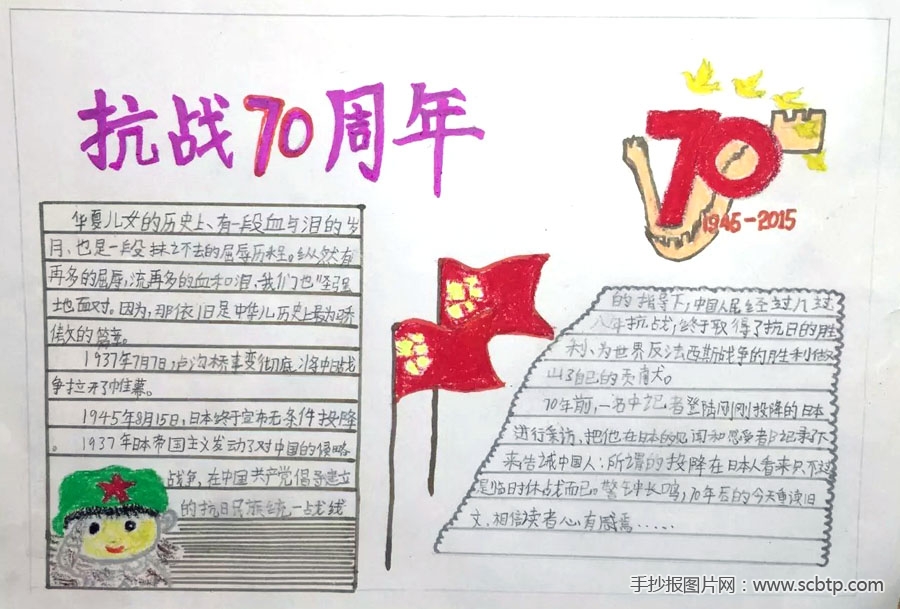 抗战70周年
70
1945-2015
华夏儿女的历史上、有一段血与泪的岁
月、也是一段抹之不去的屈辱历程。纵然有
再多的屈辱,流再多的血和泪,我们也“坚强
地面对。因为,那依旧是中华儿历史上最为骄
傲的篇章。
1937年7月7,卢沟桥事变彻底,将中日战
争拉开了帷幕。
1945年8月15,日本终于宣布无条件投降
。1937年日本帝国主义发动了对中国的侵略
战争,在中国共产党倡导建立
的抗日民族统一战线
的指导下,中国人民经过几过
八年抗战,终于取得了抗日的胜
利、为世界反法西斯战争的胜利做
出了自己的贡献。
70年前,一名中记者登陆刚刚投降的日本
进行采访、把他在日本的见闻和感受都记录下
来告诫中国人:所谓的投降在日本人看来只不过
是临时休战而已。警钟长鸣,70年后的今天重读旧
文、相信读者心有戚焉……
手抄报图片网:www.scbtp.com